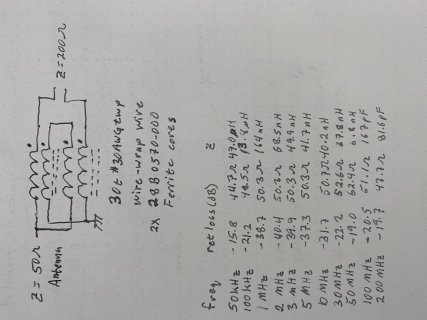 Z = 50Ω
Antenna
Z = 200Ω
30t #30AWG twp
wire-wrap wire
2X 28B0570-000
Ferrite cores
freq ret loss (dB) Z
50kHz -15.8 44.7Ω 47.0µH
100kHz -21.2 48.5Ω 13.8µH
1 MHz -38.7 50.3Ω 164nH
2 MHz -40.4 50.3Ω 68.5nH
3 MHz -39.9 50.3Ω 49.9nH
5 MHz -37.3 50.3Ω 41.7nH
10 MHz -31.7 50.7Ω 40.2nH
30 MHz -22.2 52.6Ω 37.8nH
50 MHz -19.0 62.4Ω 6.8nH
100 MHz -20.5 167pF
200 MHz -19.7 47.7Ω 31.6pF